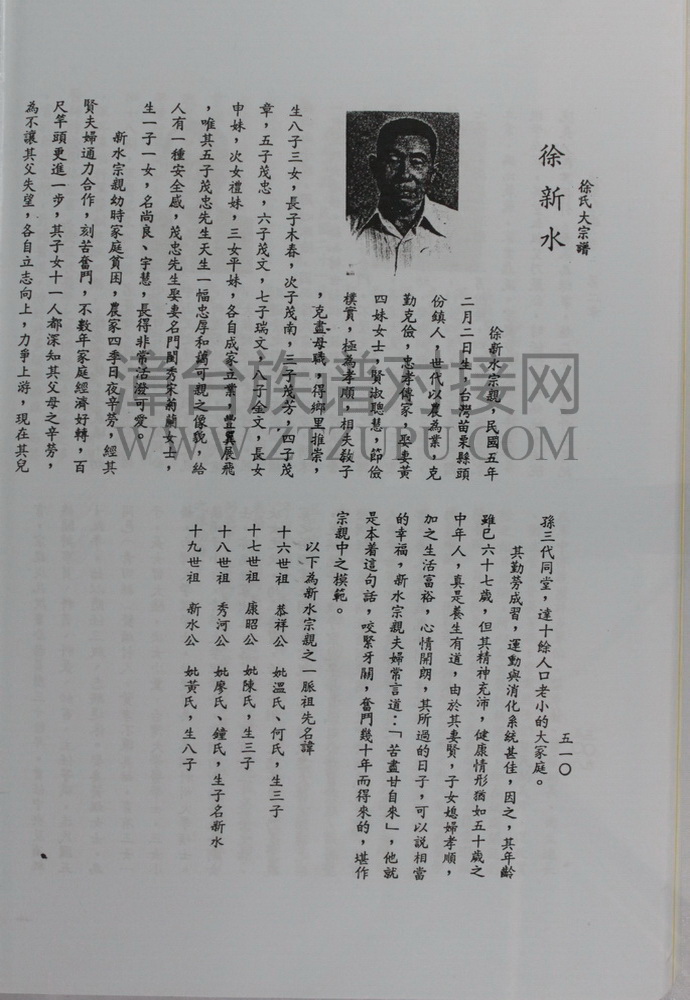 徐氏大宗譜
徐新水
徐新水宗親，民國五年
二月二日生，台灣苗栗縣頭
份鎮人，世代以農為業，克
勤克儉，忠孝傳家，娶妻黃
四妹女士，賢淑聰慧，節儉
樸實，極為孝順，相夫教子
，克盡母職，得鄉里推崇，
生八子三女，長子木春，次子茂南，三子茂芳，四子茂
章，五子茂忠，六子茂文，七子瑞文，八子金文，長女
申妹，次女禮妹，三女平妹，各自成家立業，豐翼展飛
，唯其五子茂忠先生天生一幅忠厚和藹可親之像貌，給
人有一種安全感，茂忠先生娶妻名門閨秀宋菊蘭女士，
生一子一女，名尚良、宇慧，長得非常活潑可愛。
新水宗親幼時家庭貧困，農家四季日夜辛勞，經其
賢夫婦通力合作，刻苦奮鬥，不數年家庭經濟好轉，百
尺竿頭更進一步，其子女十一人都深知其父母之辛勞，
為不讓其父失望，各自立志向上，力爭上游，現在其兒
五一〇
孫三代同堂，達十餘人口老小的大家庭。
其勤勞成習，運動與消化系統甚佳，因之，其年齡
雖已六十七歲，但其精神充沛，健康情形猶如五十歲之
中年人，真是養生有道，由於其妻賢，子女媳婦孝順，
加之生活富裕，心情開朗，其所過的日子，可以說相當
的幸福，新水宗親夫婦常言道：「苦盡甘自來」，他就
是本着這句話，咬緊牙關，奮鬥幾十年而得來的，堪作
宗親中之模範。
以下為新水宗親之一脈祖先名諱
十六世祖　恭祥公　妣溫氏、何氏，生三子
十七世祖　康昭公　妣陳氏，生三子
十八世祖　秀河公　妣廖氏、鐘氏，生子名新水
十九世祖　新水公　妣黃氏，生八子
漳台族谱对接网
WWW.ZTZUPU.COM